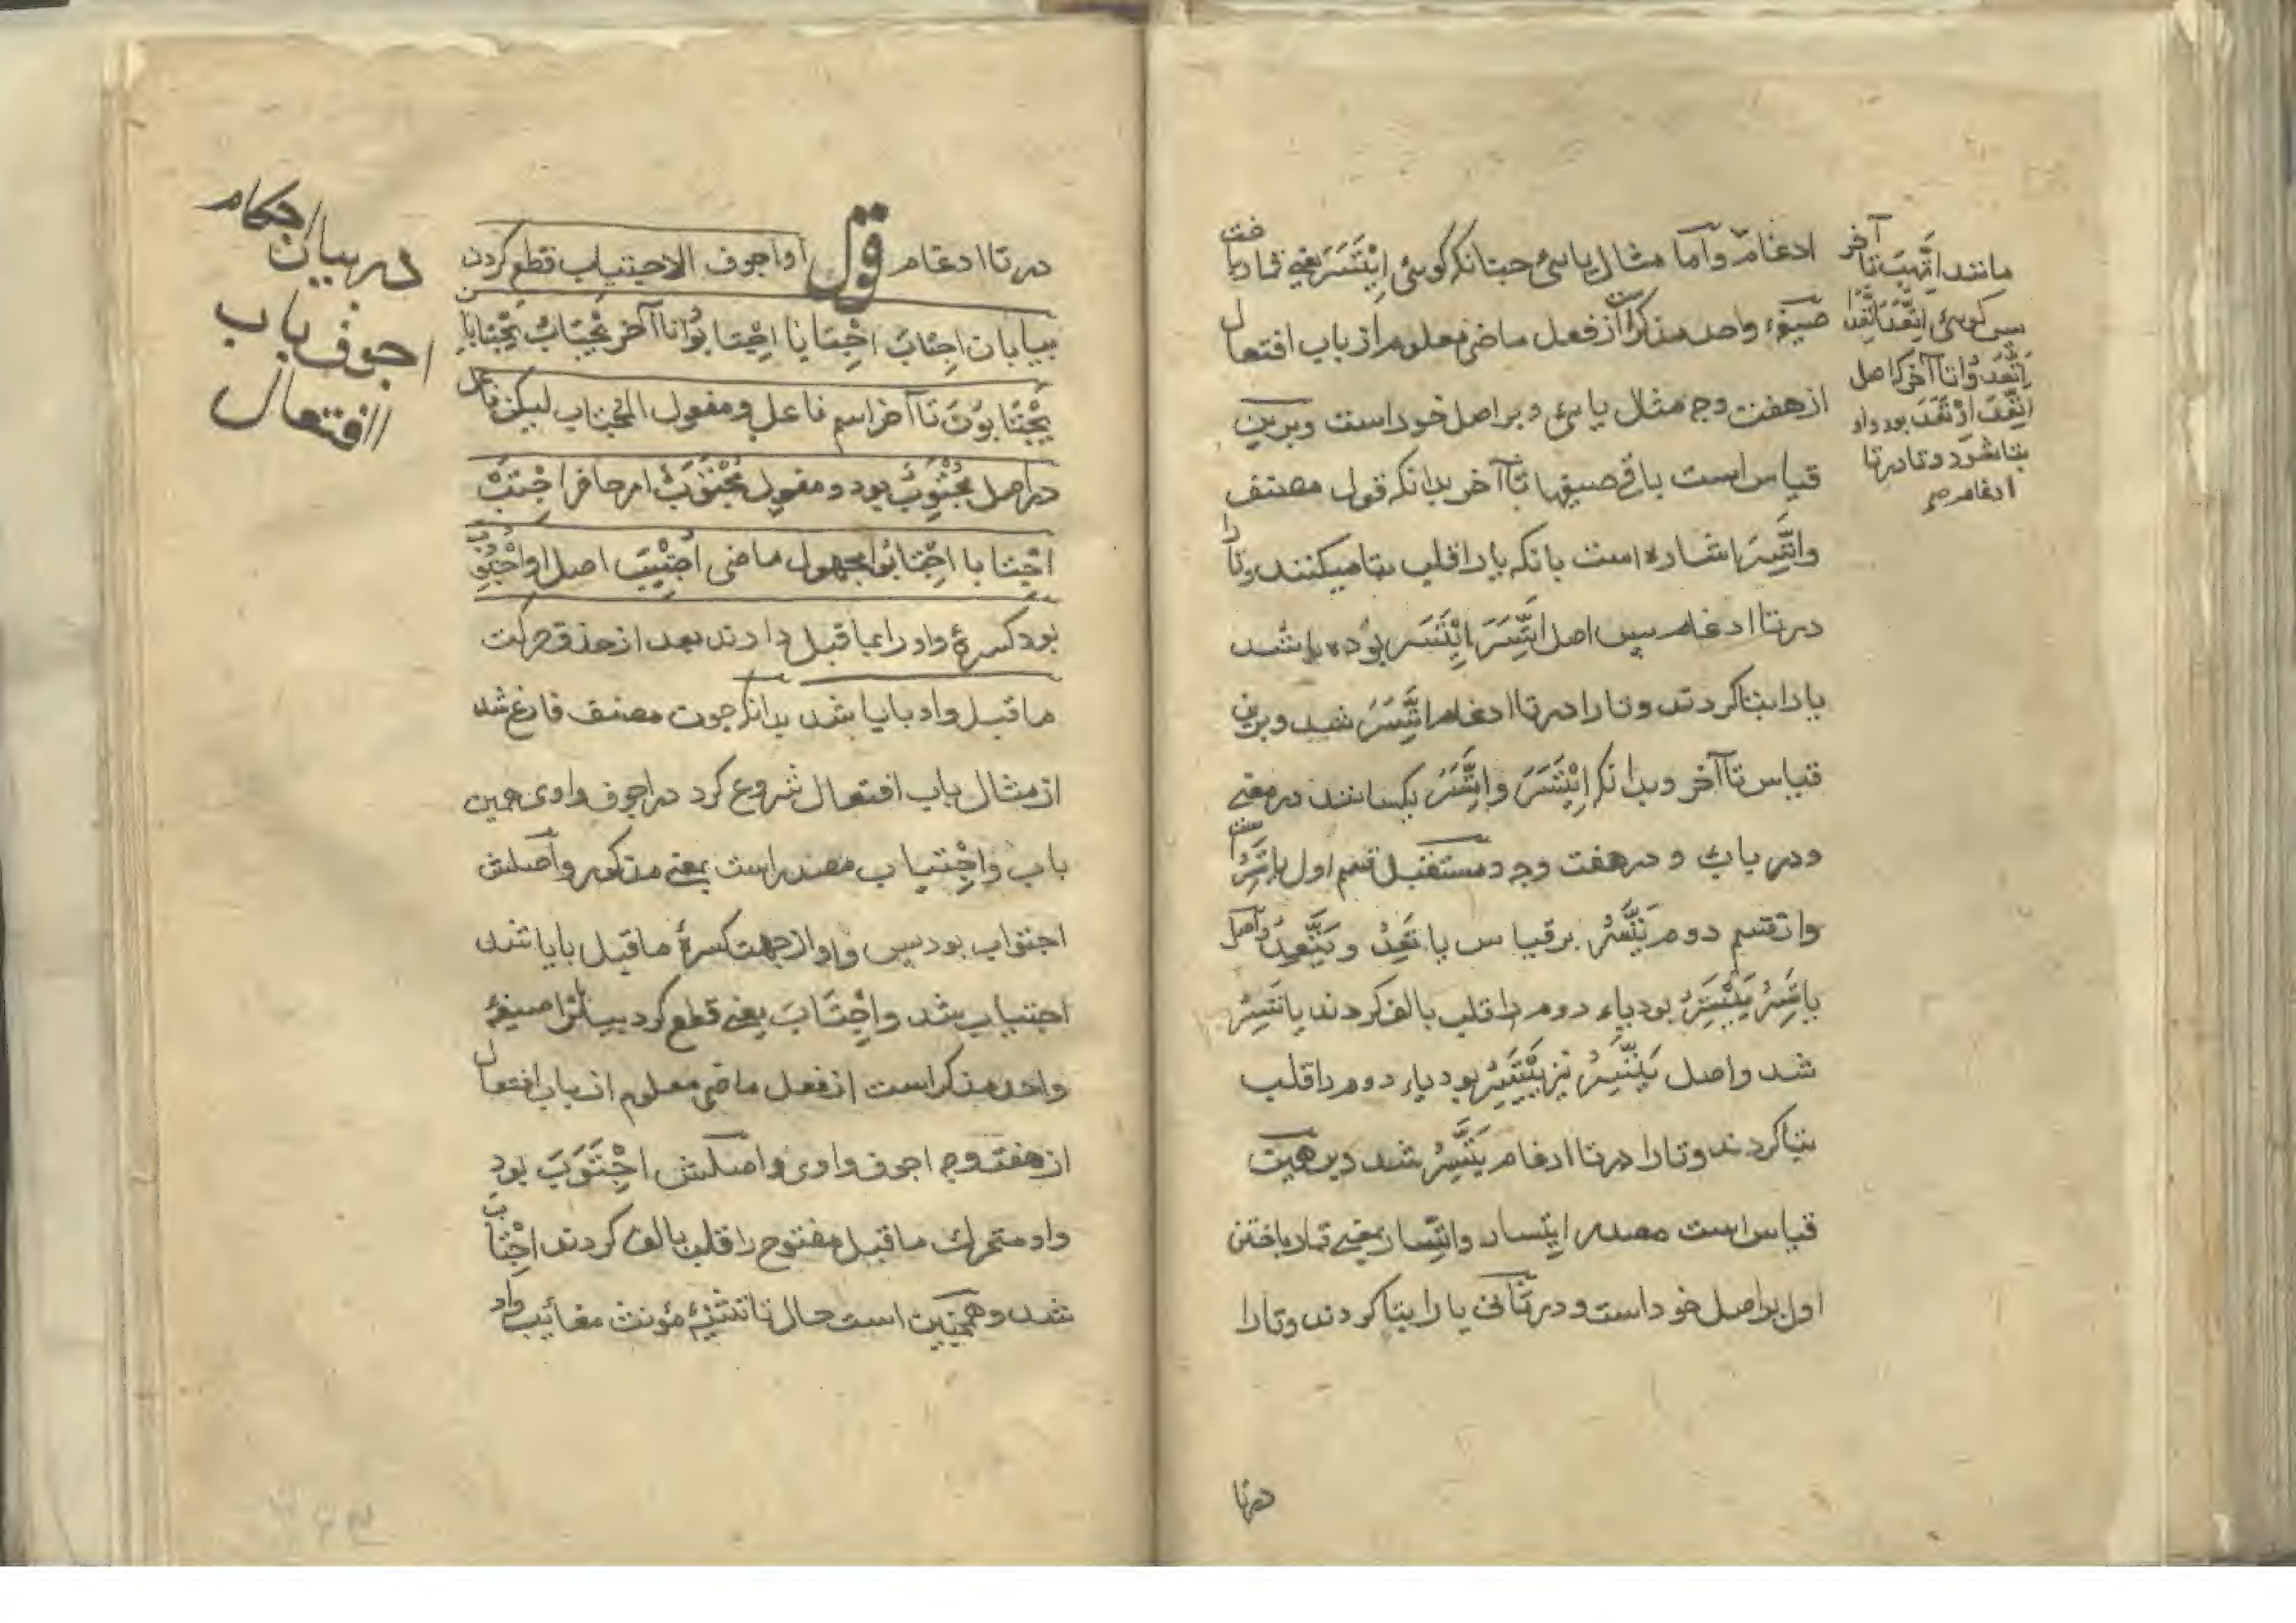 ادغام و اما مثال یائی چنانکه گوئی اِیْتَسَرَ یعنی قمار باخت
صیغهٔ واحد مذکر است از فعل ماضی معلوم از باب افتعال
از هفت وجه مثال یائی و بر اصل خود است و برین
قیاس است باقی صیغها تا آخر بدانکه قول مصنف
واتَّسَرَ اشاره است بانکه یا را قلب بتا میکنند و تا را
در تا ادغام پس اصل اتَّسَرَ اِیْتَسَر بوده باشد
یا را بتا کردند و تا را در تا ادغام اتَّسَرَ شد و برین
قیاس تا آخر و بدانکه اِیْتَسَرَ و اتَّسَرَ یکسانند در معنی
و در باب و در هفت وجه و مستقبل قسم اول یاتَسِرُ است
و از قسم دوم یَتَّسِرُ بر قیاس یاتَعِدُ و یَتَّعِدُ و اصل
یاتَسِرُ یَیْتَسِرُ بود یاء دوم را قلب بالف کردند یاتَسِرُ
شد و اصل یَتَّسِرُ نیز یَیْتَسِرُ بود یاء دوم را قلب
بتا کردند و تا را در تا ادغام یَتَّسِرُ شد و بر همین
قیاس است مصدر ایتسار و اتّسار بمعنی قمار باختن
اول بر اصل خود است و در ثانی یا را بتا کردند و تا را
در تا
مانند اتَّهَبَ تا آخر
پس گوئی اتَّعَدَ اتَّعَدا
اتَّعَدُوا تا آخر که اصل
اتَّعَدَ اوْتَعَدَ بود واو
بتا شد و تا در تا
ادغام صح
در تا ادغام قوله او اجوف الاجتیاب قطع کردن
بیابان اجتابَ اجتابا اجتابوُا تا آخر یَجْتابُ یجتابان
یَجْتابُونَ تا آخر اسم فاعل و مفعول المجتاب لیکن فاعل
در اصل مُجْتَوِبٌ بود و مفعول مُجْتَوَبٌ امر حاضر اجْتَبْ
اجْتابا اجْتابُوا مجهول ماضی اُجْتِیبَ اصل او اُجْتُوِبَ
بود کسرهٔ واو را بما قبل دادند بعد از حذف حرکت
ما قبل واو با یا شد بدانکه چون مصنف فارغ شد
از مثال باب افتعال شروع کرد در اجوف واوی همین
باب و اجْتیاب مصدر است بمعنی مذکور و اصلش
اجتواب بود پس واو از جهت کسرهٔ ما قبل با یا شد
اجتیاب شد و اجْتابَ یعنی قطع کرد بیابانرا صیغهٔ
واحد مذکر است از فعل ماضی معلوم از باب افتعال
از هفت وجه اجوف واوی و اصلش اجْتَوَبَ بود
واو متحرک ما قبل مفتوح را قلب بالف کردند اجْتابَ
شد و همچنین است حال تا تثنیهٔ مؤنث مغائب واو
در بیان احکام
اجوف باب
الافتعال